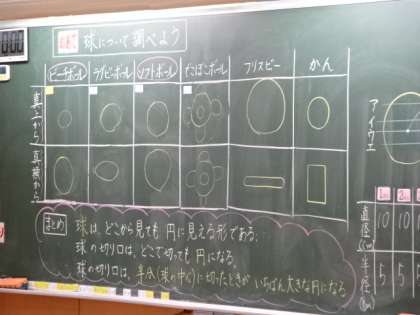 めあて 球について調べよう
ビーチボール ラグビーボール ソフトボール でこぼこボール フリスビー かん
真上から
真横から
まとめ 球は、どこから見ても円に見える形である。
球の切り口は、どこで切っても円になる。
球の切り口は、半分(球の中心)に切ったときがいちばん大きな円になる。
アイウエ
直径(cm) 10 10
半径(cm) 5 5